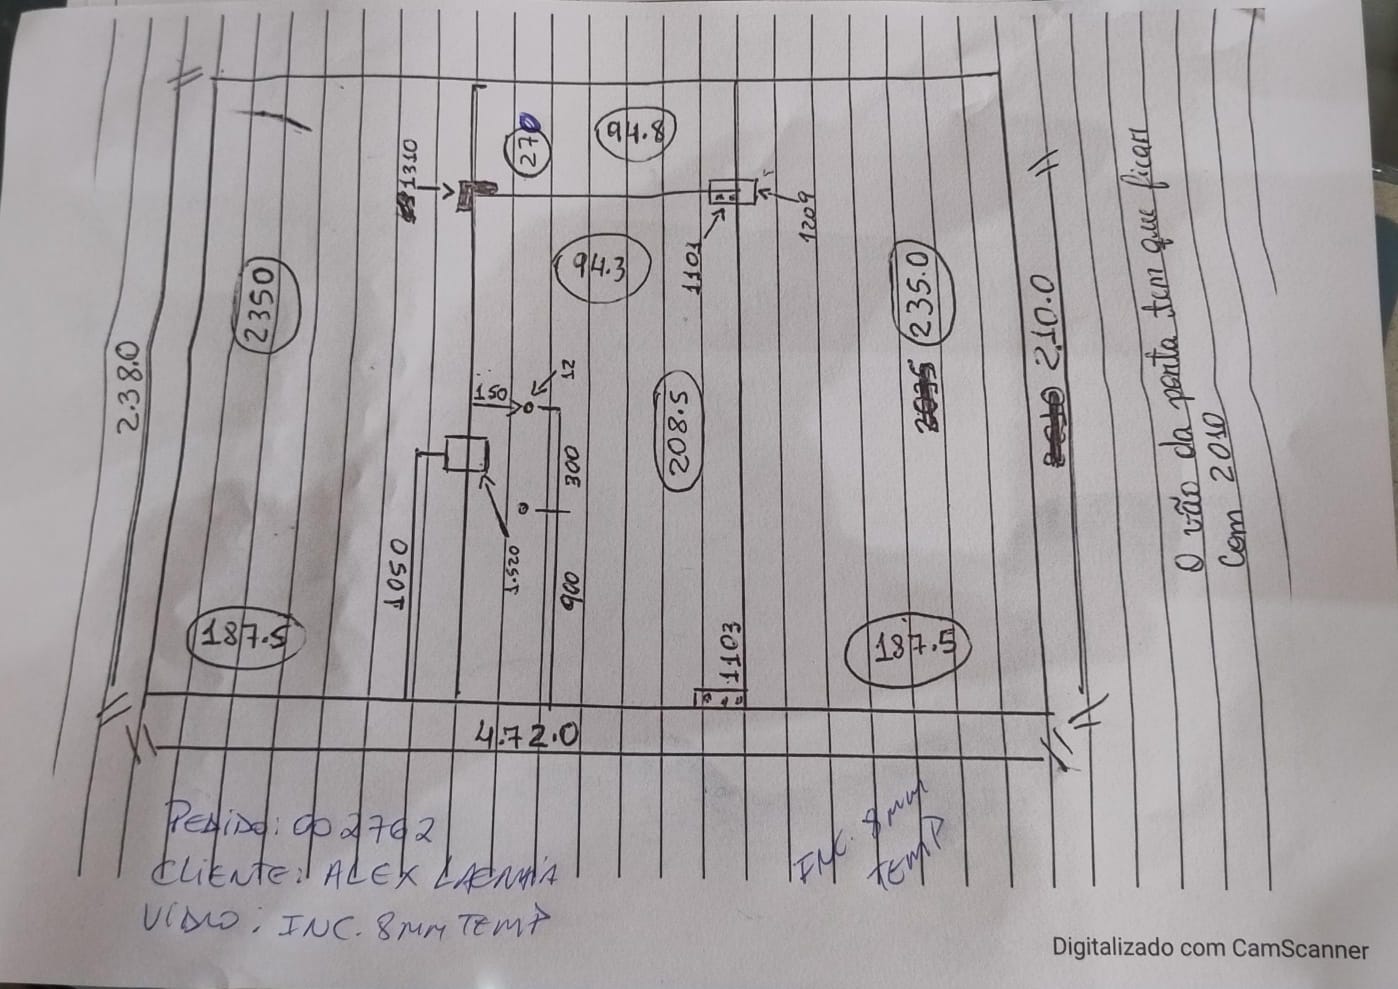 270
94.8
1310
1101
1209
94.3
2350
235.0
2.38.0
2.10.0
150
12
208.5
300
1050
1.520
900
187.5
1103
187.5
4.72.0
O vão da ponta tem que ficar
com 2010
PEDIDO: 002762
CLIENTE: ALEX
VIDRO: INC. 8MM TEMP
INC. 8MM
TEMP
Digitalizado com CamScanner